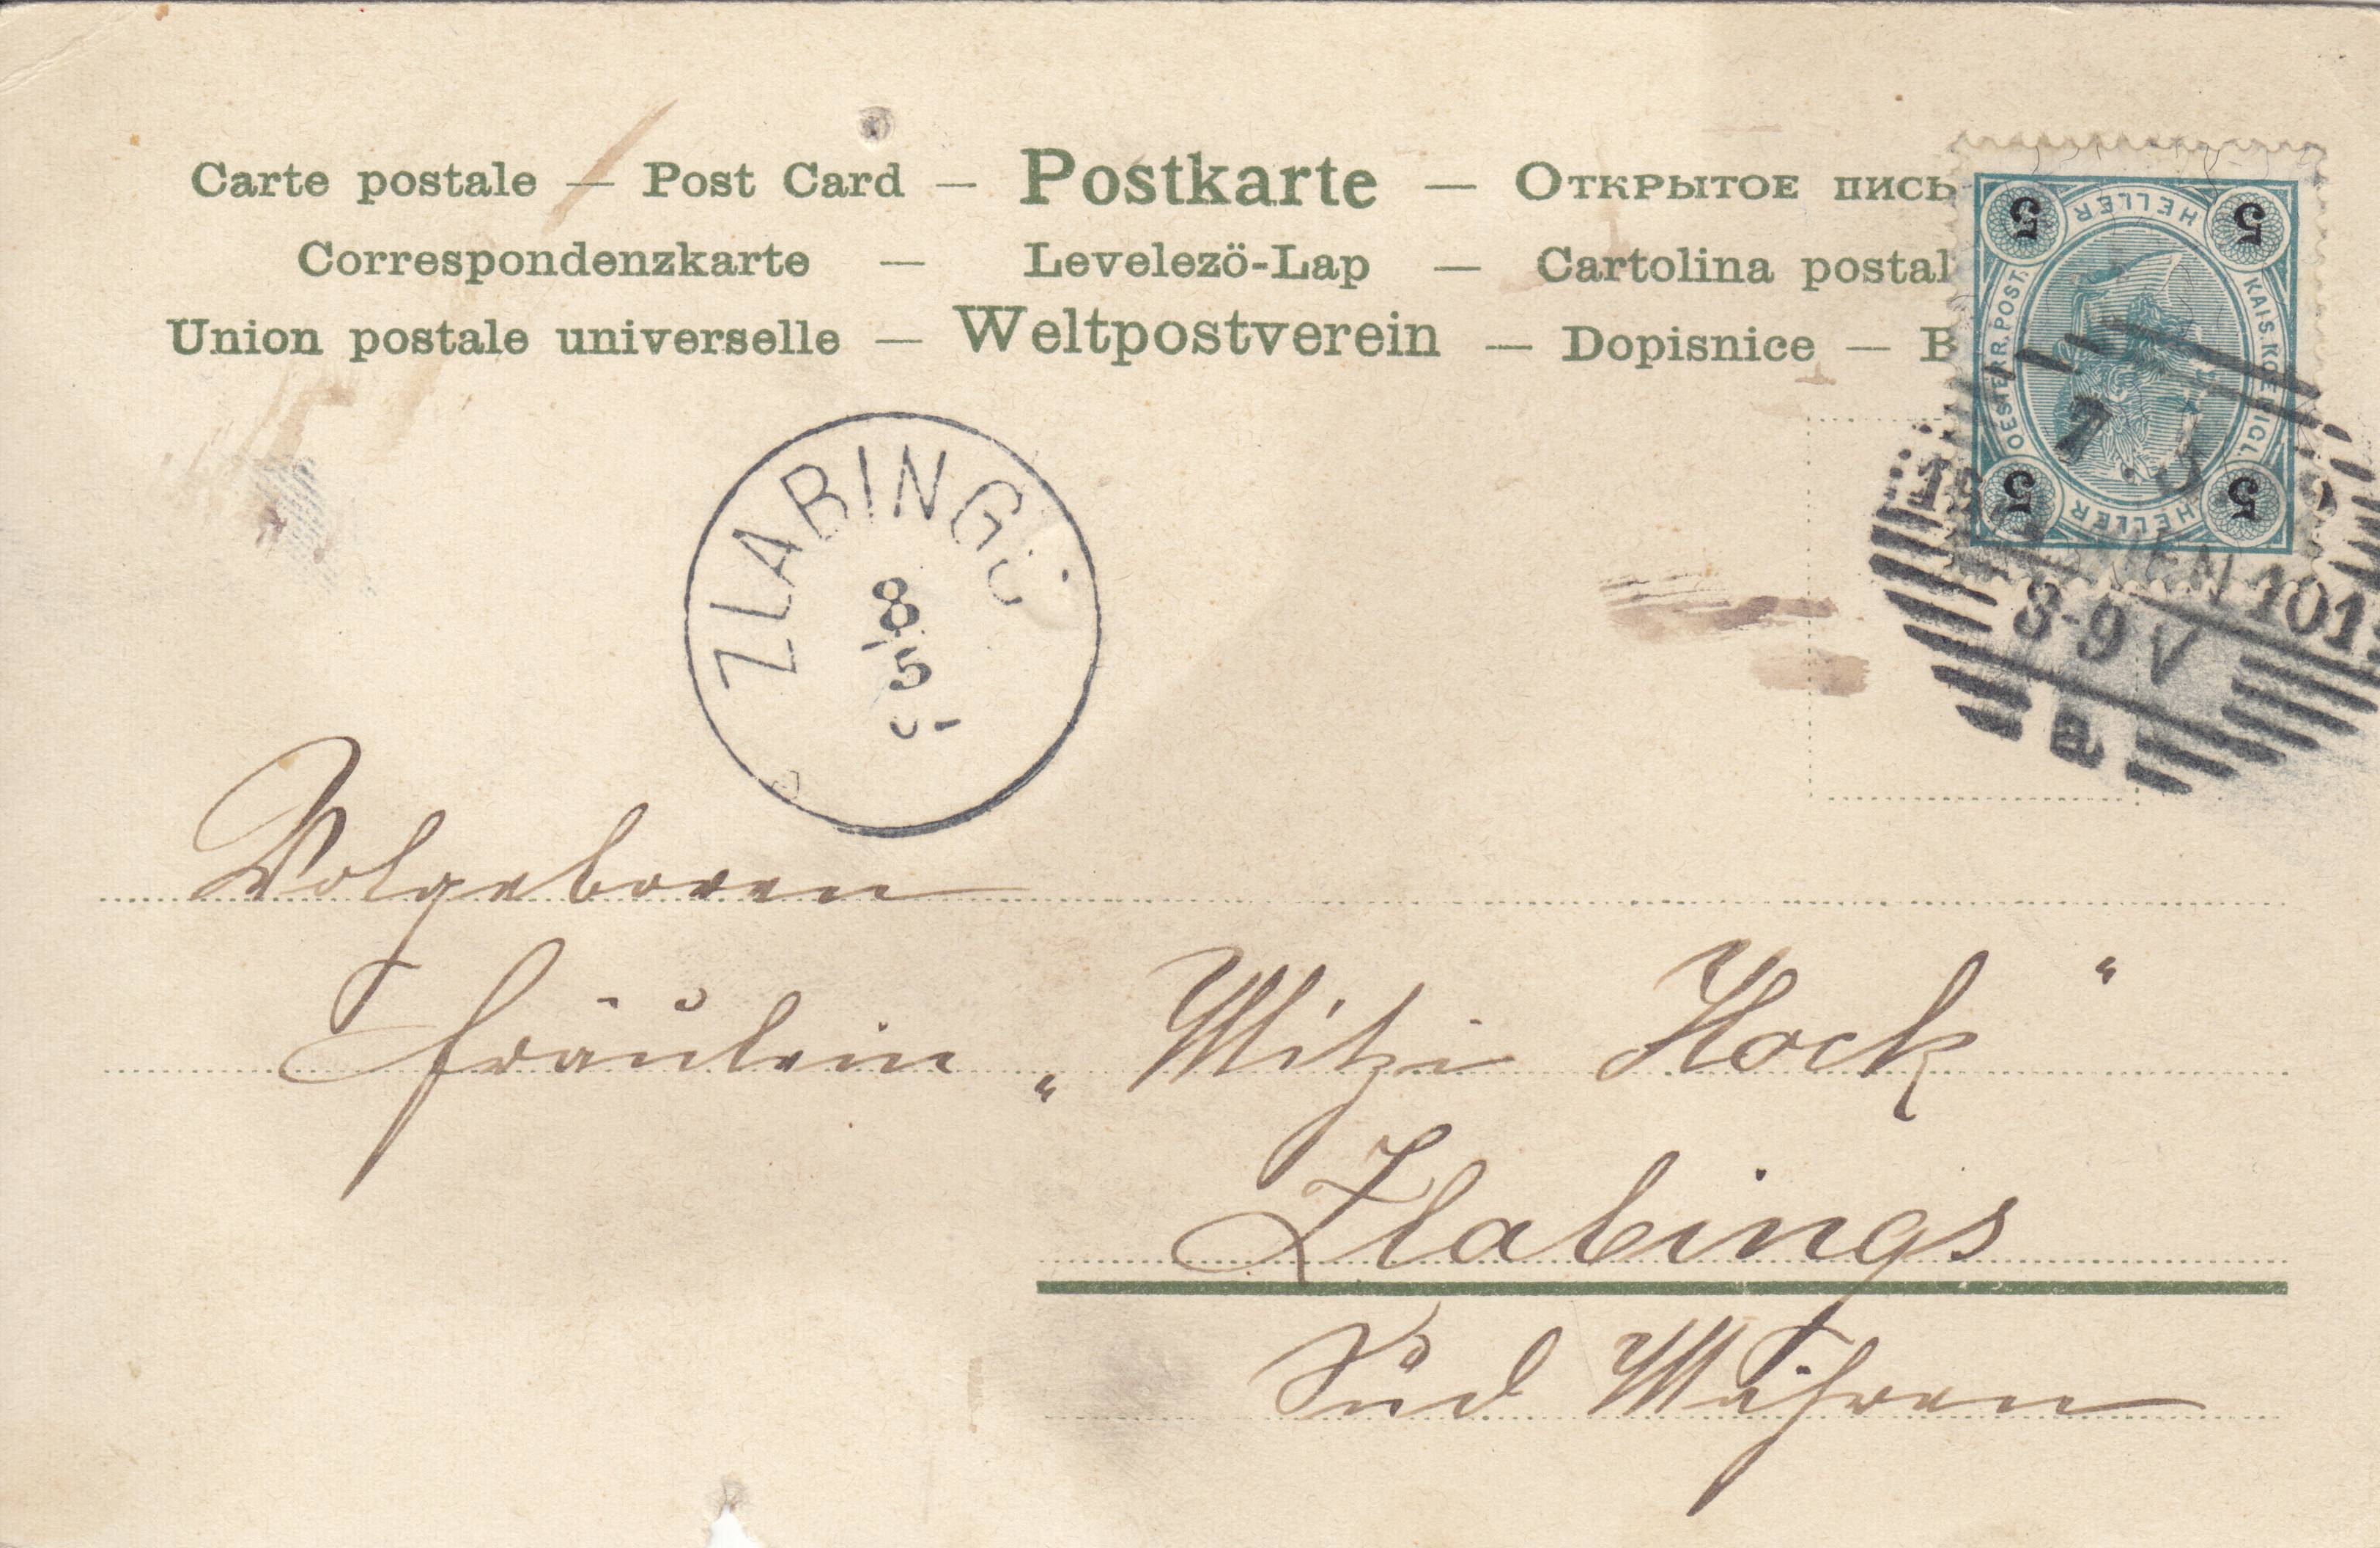 Carte postale — Post Card — Postkarte — Открытое пись
Correspondenzkarte — Levelezö-Lap — Cartolina postal
Union postale universelle — Weltpostverein — Dopisnice — B
5 HELLER 5
KAIS. KOENIGL. OESTERR. POST.
5 HELLER 5
ZLABINGS
8
5
7
WIEN 101
8-9 V
a
Wolgeboren
Fräulein „Mitzi Hock“
Zlabings
Süd Mähren